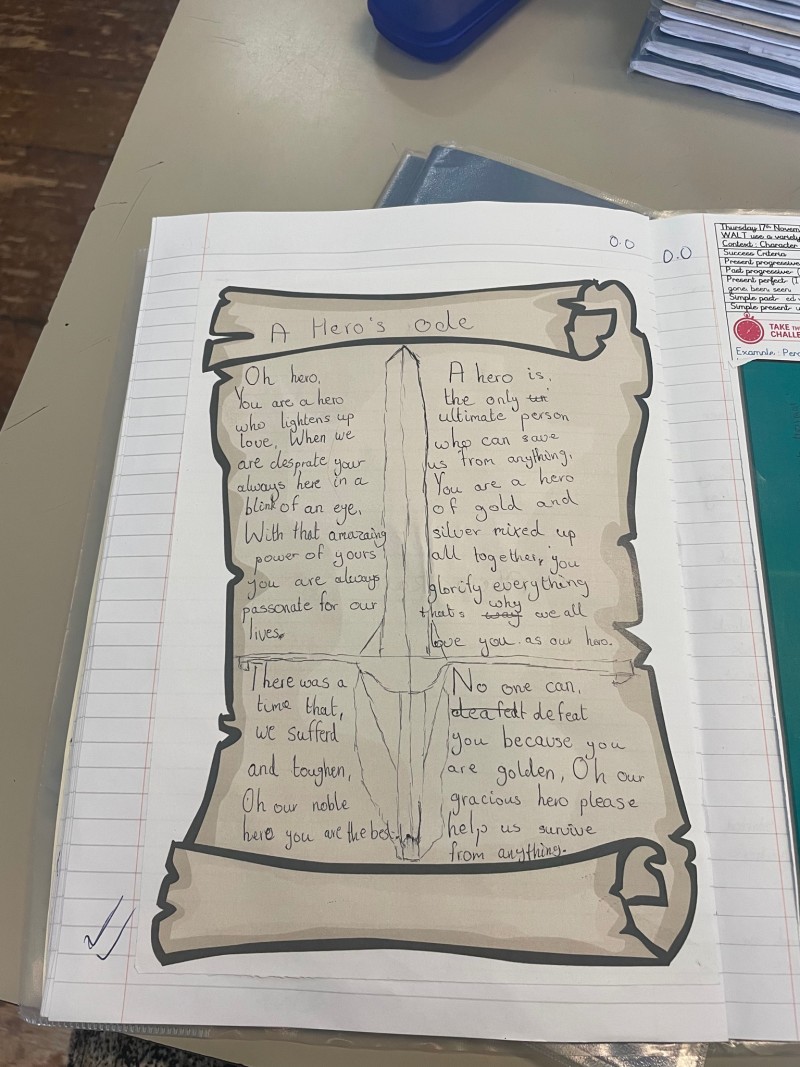 0.0
0.0
A Hero's ode
Oh hero,
You are a hero
who lightens up
love, When we
are desprate your
always here in a
blink of an eye,
With that amazaing
power of yours
you are always
passonate for our
lives.
A hero is,
the only
ultimate person
who can save
us from anything,
You are a hero
of gold and
silver mixed up
all together, you
glorify everything
thats why we all
love you as our hero.
There was a
time that,
we sufferd
and toughen,
Oh our noble
hero you are the best.
No one can,
deafeat defeat
you because you
are golden, Oh our
gracious hero please
help us survive
from anything.
Thursday 17th Novem
WALT use a variety
Context: Character
Success Criteria
Present progressive
Past progressive (
Present perfect (I
gone, been, seen
Simple past- ed
Simple present
TAKE TH
CHALLE
Example: Perc